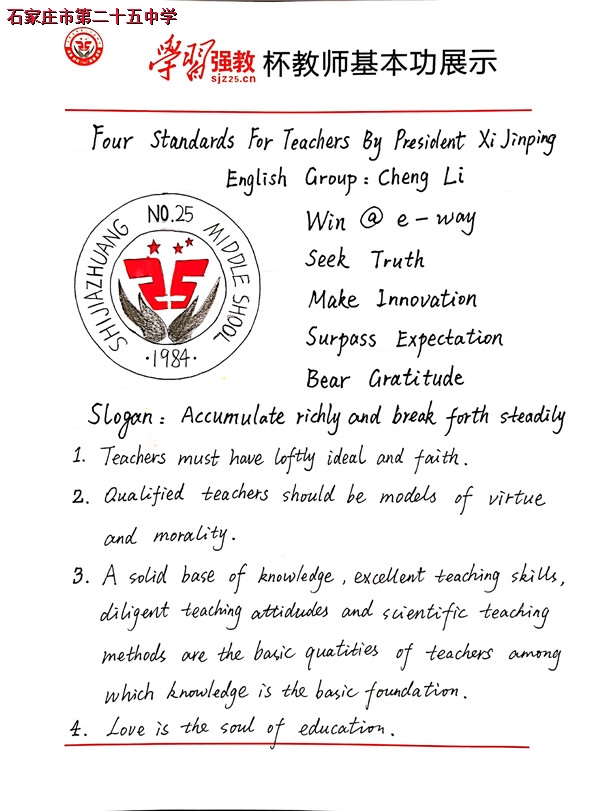 石家庄市第二十五中学
学习强教 杯教师基本功展示
sjz25.cn
Four Standards For Teachers By President Xi Jinping
English Group: Cheng Li
SHIJIAZHUANG NO.25 MIDDLE SHOOL
25
·1984·
Win @ e-way
Seek Truth
Make Innovation
Surpass Expectation
Bear Gratitude
Slogan: Accumulate richly and break forth steadily
1. Teachers must have loftly ideal and faith.
2. Qualified teachers should be models of virtue
and morality.
3. A solid base of knowledge, excellent teaching skills,
diligent teaching attidudes and scientific teaching
methods are the basic quatities of teachers among
which knowledge is the basic foundation.
4. Love is the soul of education.